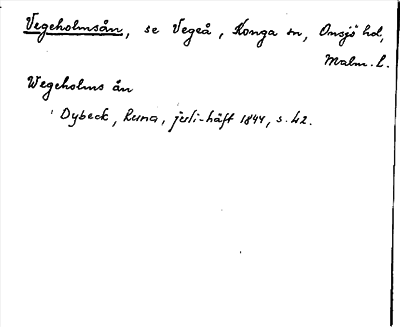 Vegeholmsån, se Vegeå, Konga sn, Onsjö hd,
Malm. l.
Wegeholms ån
Dybeck, Runa, juli-häft 1844, s. 42.